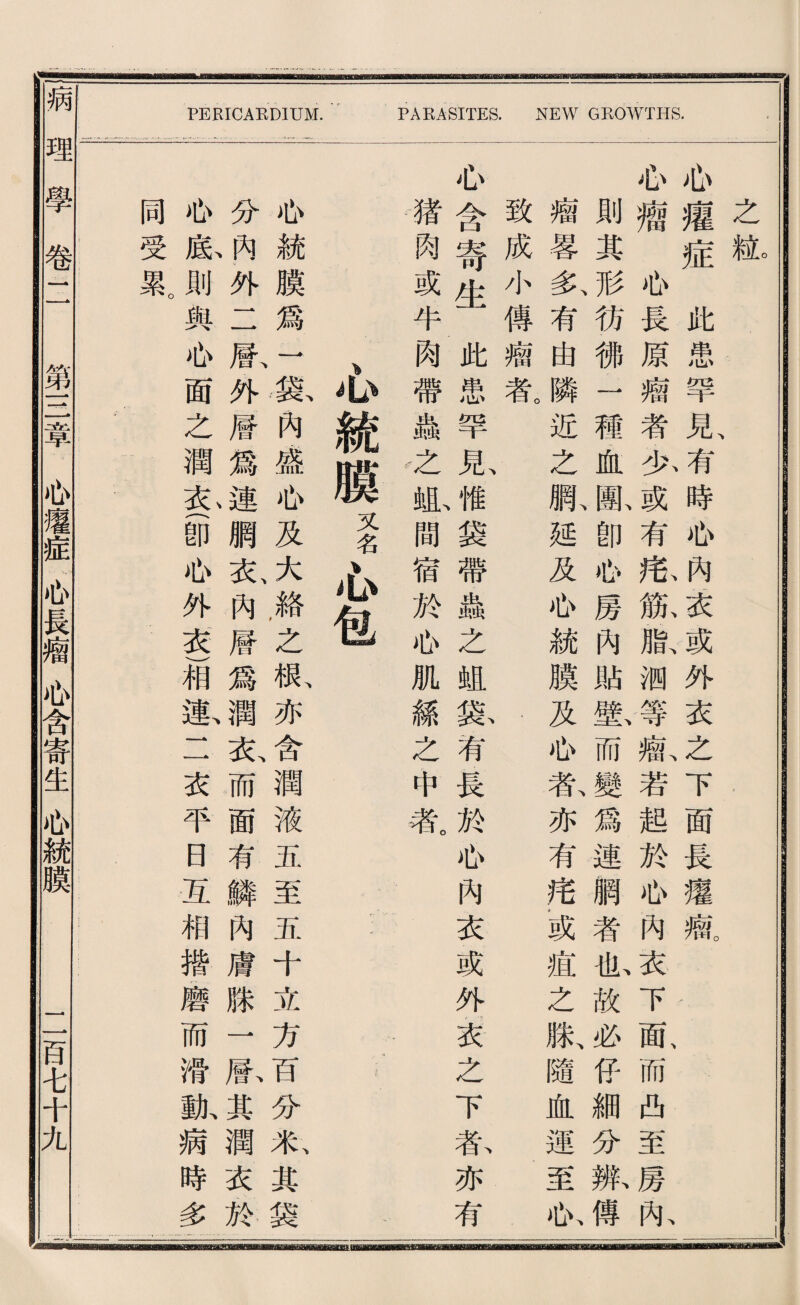 PERICARDIUM. PARASITES. NEW GROWTHS.
之粒。
心癯症 此患罕見、有時心內衣或外衣之下面長癯瘤。
心瘤 心長原瘤者少、或有疺、筋、脂、泗等瘤、若起於心內衣下面、而凸至房內、
則其形彷彿一種血團、卽心房內貼壁、而變爲連膶者也、故必仔細分辨、傳
瘤畧多、有由隣近之膶、延及心統膜及心者、亦有疺或疽之脒、隨血運至心、
致成小傳瘤者。
心含寄生 此患罕見、惟袋帶蟲之蛆袋、有長於心內衣或外衣之下者、亦有
猪肉或牛肉帶蟲之蛆、間宿於心肌絲之中者。
心統膜 又名 心包
心統膜爲一袋、內盛心及大絡之根、亦含潤液五至五十立方百分米、其袋
分內外二層、外層爲連膶衣、內層爲潤衣、而面有鱗內膚脒一層、其潤衣於
心底、則與心面之潤衣、(卽心外衣)相連、二衣平日互相揩磨而滑動、病時多
同受累。
病理學 卷二 第三章 心癯症 心長瘤 心含寄生 心統膜 二百七十九